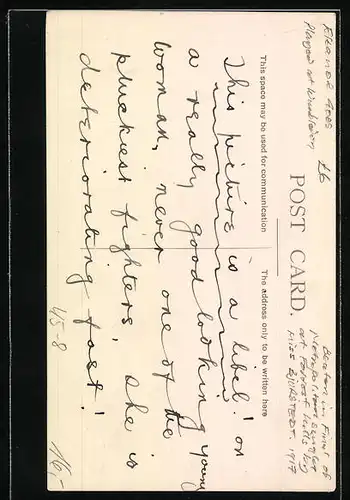 ELEANOR GOSS
Played at Wimbledon
£6
POST CARD.
Beaten in Final of
Metropolitan Singles
at Forrest Hills by
MISS BJURSTEDT. 1917
This space may be used for communication
The address only to be written here
This picture is a libel! on
a really good looking young
woman, never one of the
pluckiest fighters, she is
deteriorating fast!
45-8
16,-